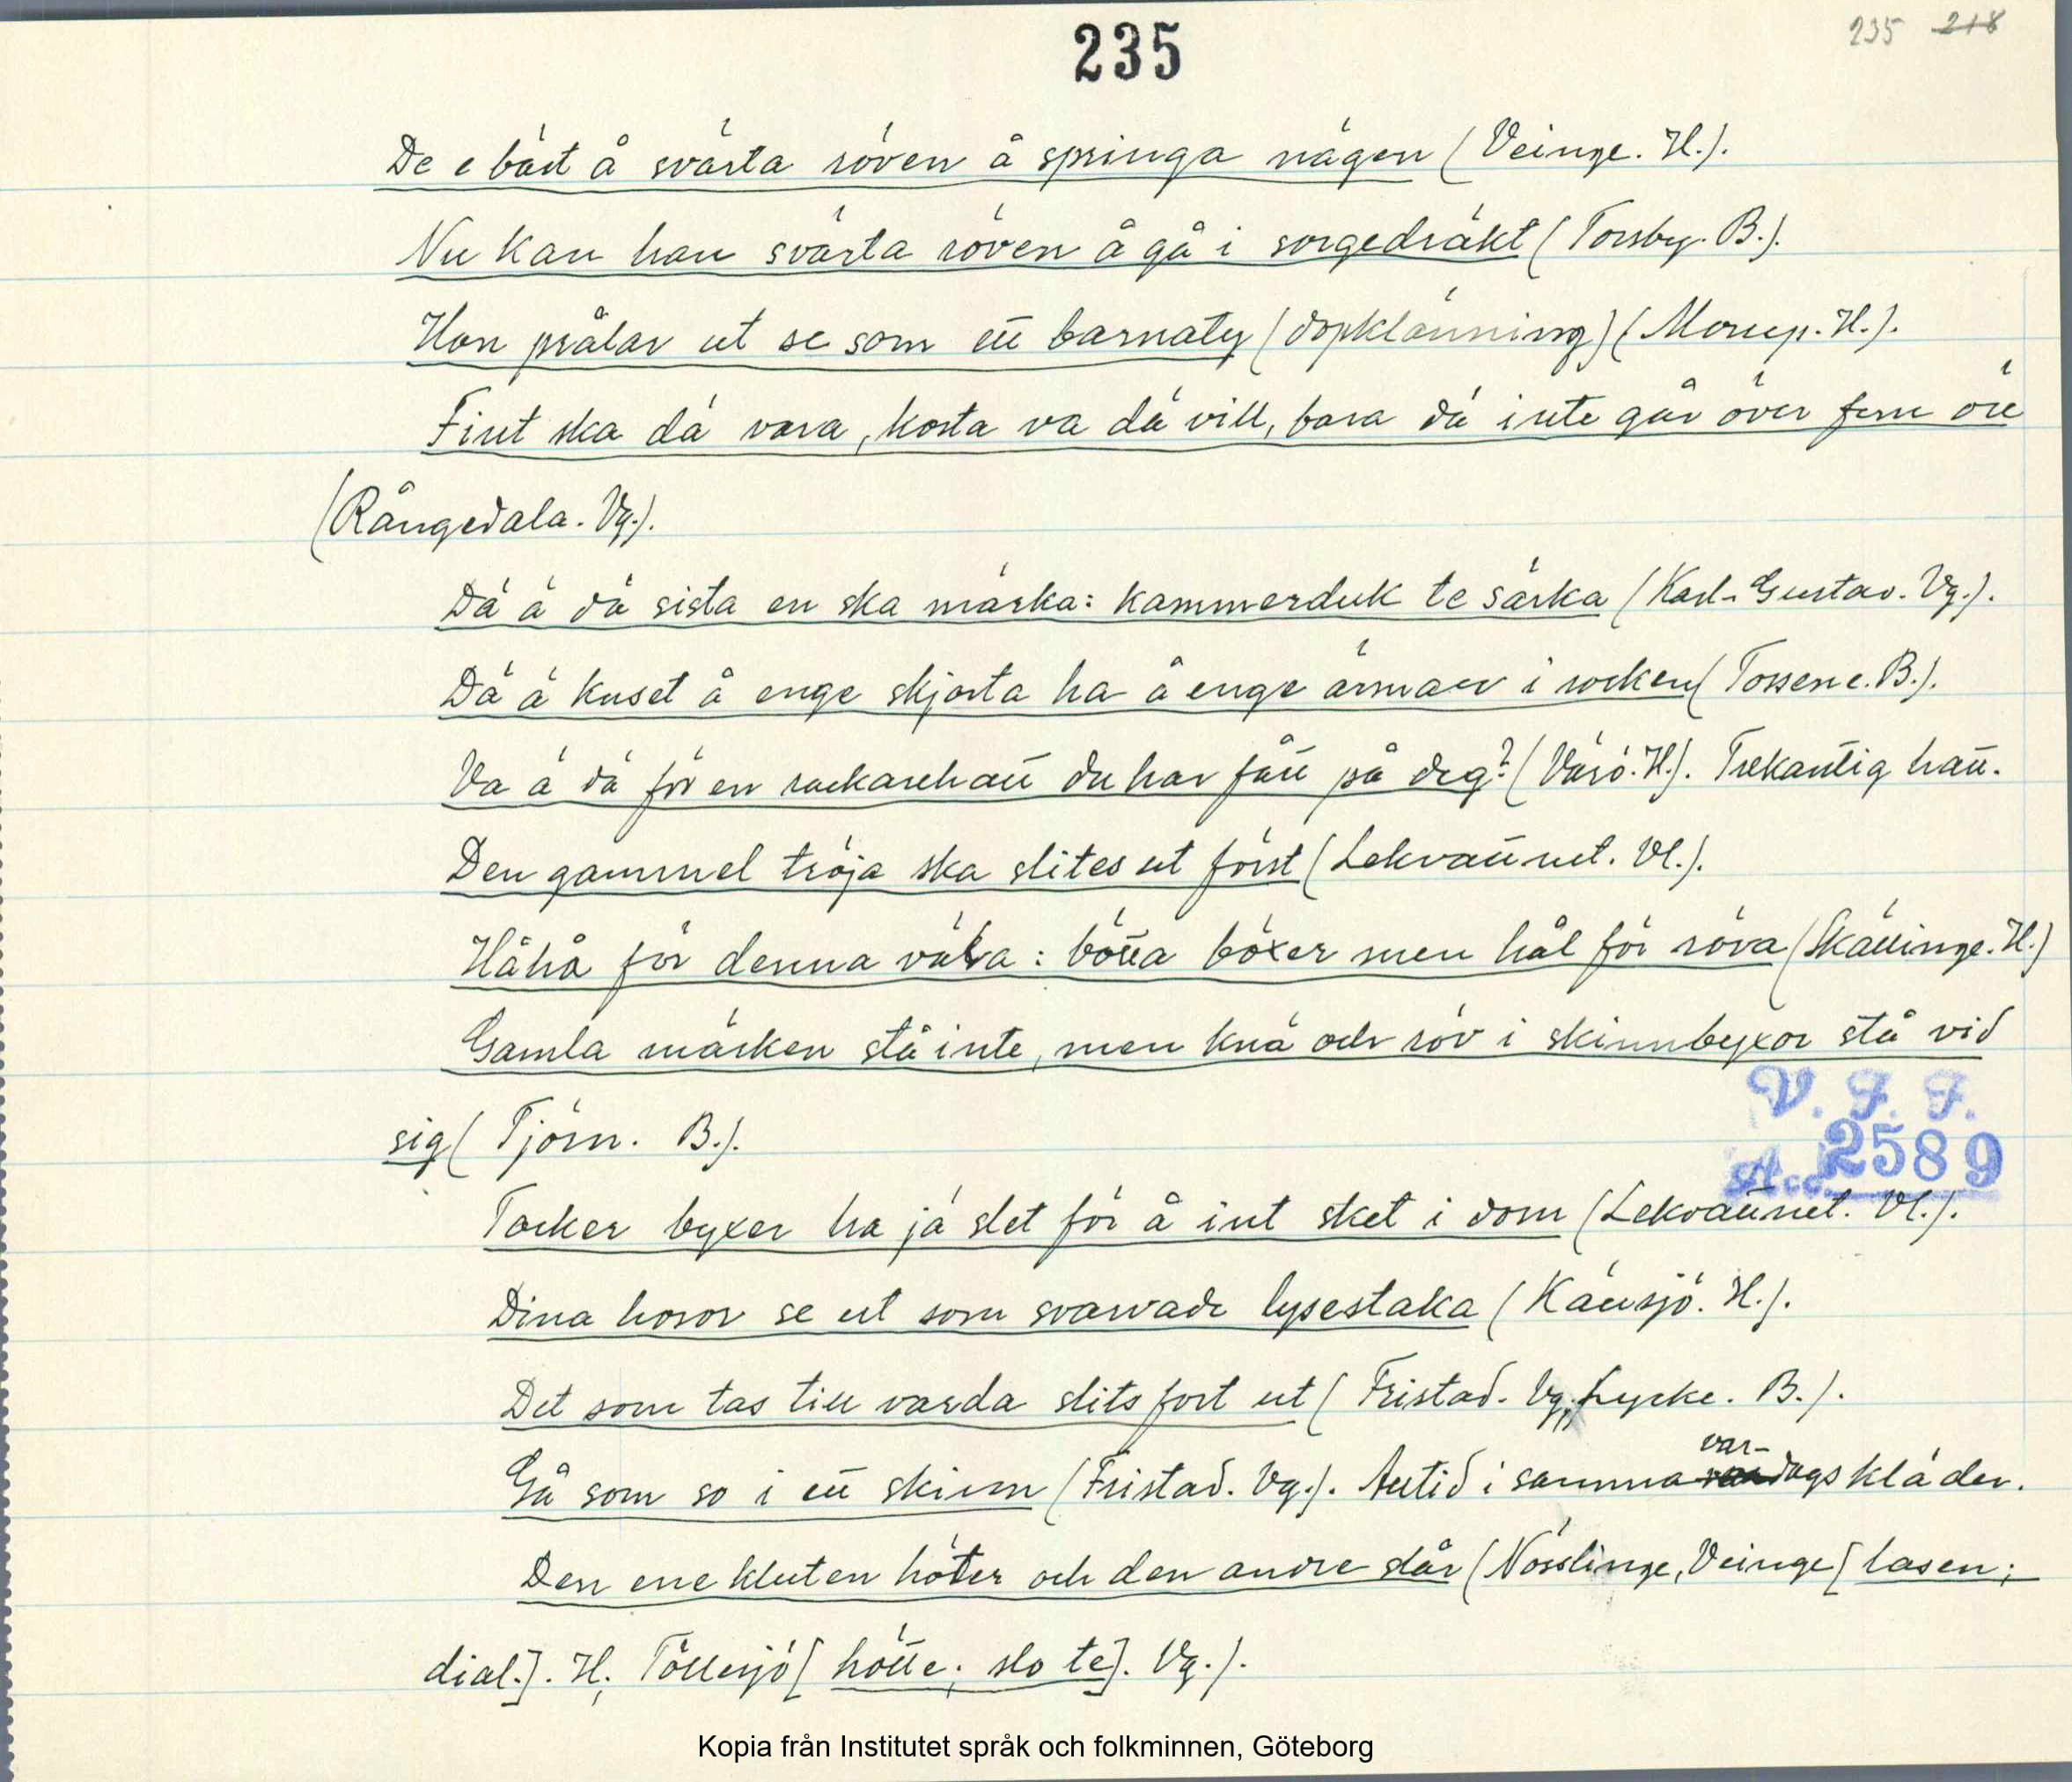 235
235 218
De e bäst å svärta röven å springa någen (Veinge. H.).
Nu kan han svärta röven å gå i sorgedräkt (Torsby. B.).
Hon prålar ut se som ett barnaty (dopklänning) (Morup. H.).
Fint ska dä vara, kosta va dä vill, bara dä inte går över fem öre
(Rångedala. Vg.).
Dä ä dä sista en ska märka: kammerduk te särka (Karl-Gustav. Vg.).
Dä ä kuset å enge skjorta ha å enge ärmaer i rocken (Tossene. B.).
Va ä dä för en rackarehatt du har fått på deg? (Värö. H.). Trekantig hatt.
Den gammel tröja ska slites ut först (Lekvattnet. Vl.).
Håhå för denna väla: bötta böxer men hål för röva (Skällinge. H.)
Gamla märken stå inte, men knä och röv i skinnbyxor stå vid
sig (Tjörn. B.).
V. F. F.
Acc. 2589
Tocker byxer ha jä slet för å int sket i dom (Lekvattnet. Vl.).
Dina hosor se ut som svarvade lysestaka (Källsjö. H.).
Det som tas till varda slits fort ut (Fristad. Vg.; Lycke. B.).
Gå som so i ett skinn (Fristad. Vg.). Alltid i samma var-dagskläder.
Den ene kluten höter och den andre slår (Nösslinge, Veinge [lasen;
dial.]. H; Töllesjö [hötte; slo te]. Vg.).
Kopia från Institutet språk och folkminnen, Göteborg